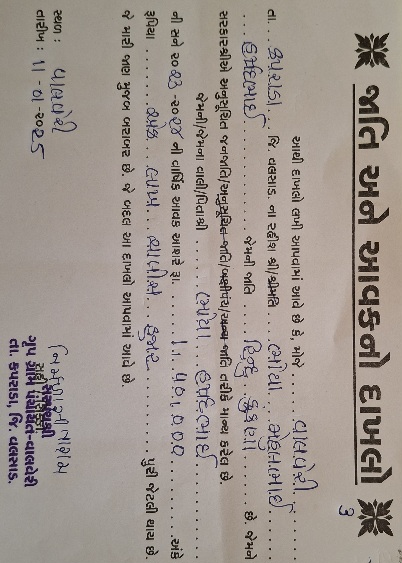 જાતિ અને આવકનો દાખલો
3
આથી દાખલો લખી આપવામાં આવે છે કે, મોજે ........ વાલવેરી ........
તા. કપરાડા .... જિ. વલસાડ. ના રહીશ શ્રી/શ્રીમતિ .... ભોયા મેહુલભાઈ ....
.... હર્ષદભાઈ ........ જેમની જાતિ .... હિન્દુ કુકણા .... છે. જેમને
સરકારશ્રીએ અનુસૂચિત જનજાતિ/અનુસૂચિત જાતિ/બક્ષીપંચ/અન્ય જાતિ તરીકે માન્ય કરેલ છે
જેમની/જેમના વાલી/પિતાશ્રી ........ ભોયા હર્ષદભાઈ ........
ની સને ૨૦૨૩ -૨૦૨૪ ની વાર્ષિક આવક આશરે રૂા. ........ 1,40,000 ........ અંકે
રૂપિયા ........ એક લાખ ચાલીસ હજાર ........ પુરી જેટલી થાય છે.
જે મારી જાણ મુજબ બરાબર છે જે બદલ આ દાખલો આપવામાં આવે છે
સ્થળ : વાલવેરી
તારીખ : 11-01-૨૦૨5
ગ્રુપ ગ્રામ પંચાયત-વાલવેરી
તા. કપરાડા, જિ. વલસાડ.